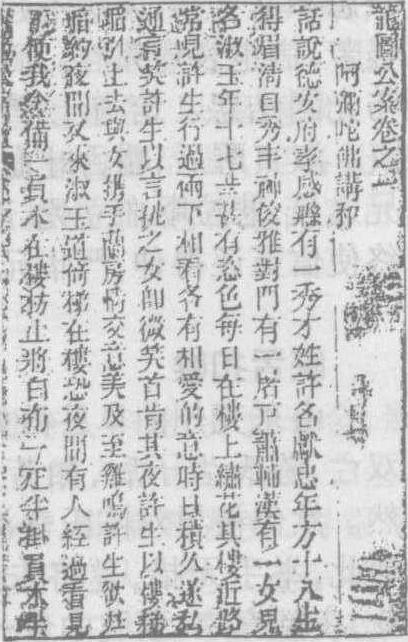 龍圖公案卷之一
阿彌陀佛講和
話說德安府孝感縣有一秀才姓許名獻忠年方十八生
得眉清目秀丰神俊雅對門有一屠戶蕭輔漢有一女兒
名淑玉年十七歲甚有姿色每日在樓上繡花其樓近路
常見許生行過兩下相看各有相愛的意時日積久遂私
通言笑許生以言挑之女卽微笑首肯其夜許生以樓梯
上去與女携手蘭房情交意美及至雞鳴許生欲歸
暗約夜間又來淑玉道倚梯在樓恐夜間有人經過看見
你我今備一圓木在樓枋上將白布一疋半掛圓木半